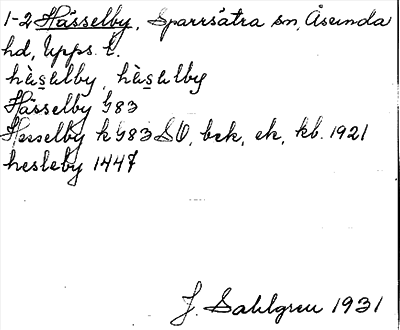 1-2 Hässelby, Sparrsätra sn, Åsunda
hd, Upps. l.
hàsəlby, hàsəlby
Hässelby G83
Hesselby k G83 SO, bek, ek, kb. 1921
hesleby 1447
J. Sahlgren 1931